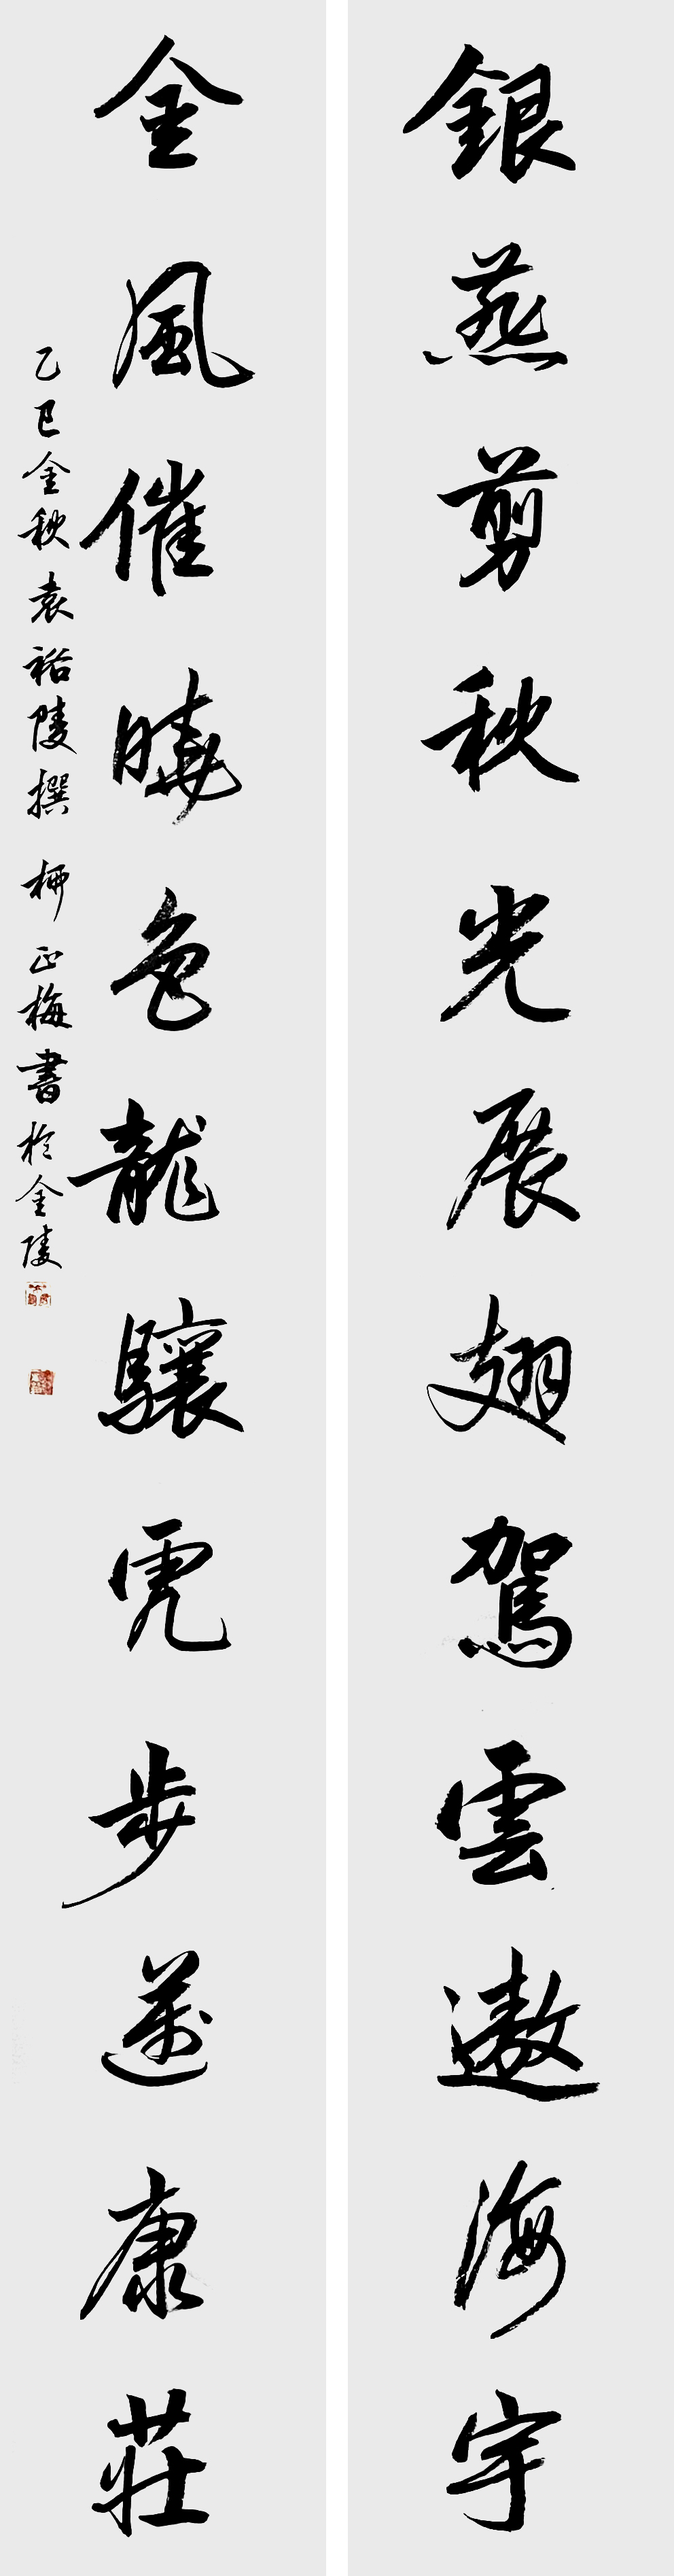 銀燕剪秋光展翅駕雲遨海宇
金風催曉色龍驤虎步邁康莊
乙巳金秋袁裕陵撰柳正梅書於金陵